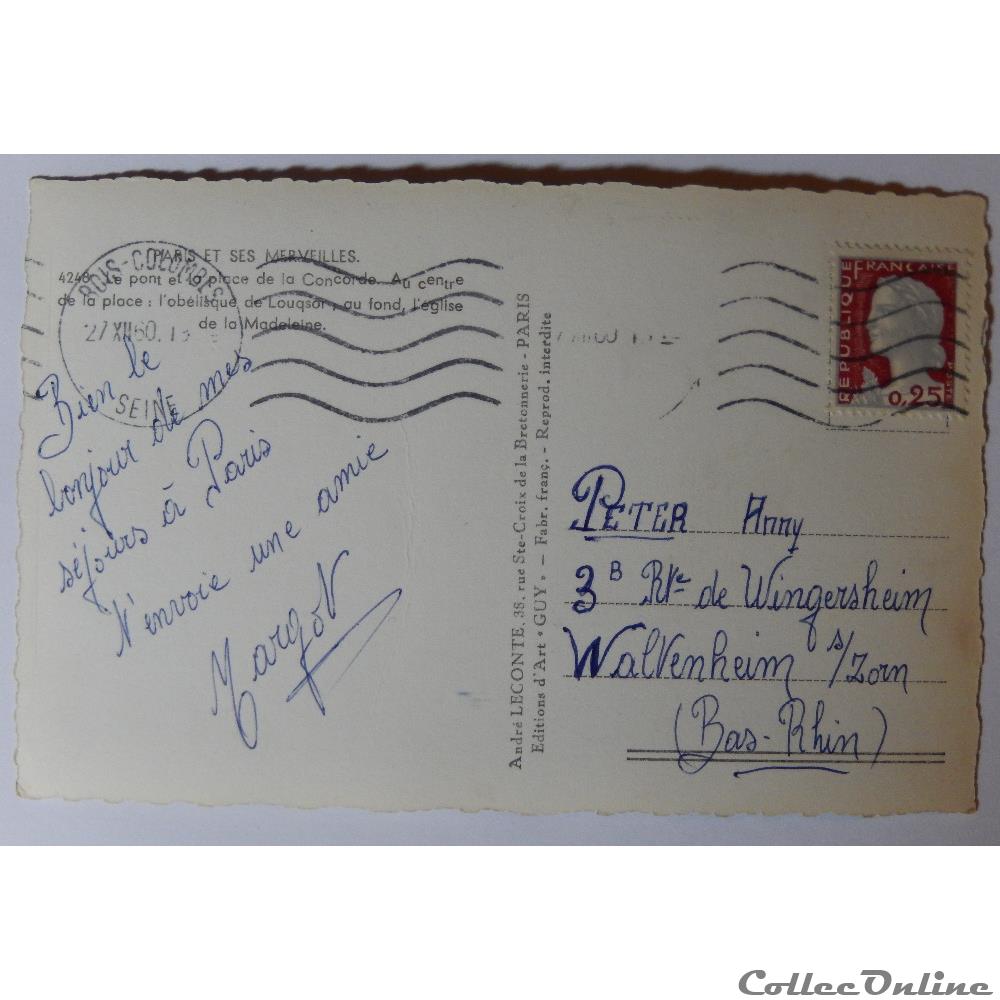 PARIS ET SES MERVEILLES.
4248. Le pont et la place de la Concorde. Au centre
de la place : l'obélisque de Louqsor ; au fond, l'église
de la Madeleine.
BOIS-COLOMBES
27 XII 60. 15
SEINE
Bien le
bonjour de mes
séjours à Paris
N'envoie une amie
Margot
André LECONTE, 38, rue Ste-Croix de la Bretonnerie - PARIS
Editions d'Art "GUY" — Fabr. franç. - Reprod. interdite
REPUBLIQUE FRANÇAISE
0,25
PETER Anny
3 B Rte de Wingersheim
Waltenheim s/Zorn
(Bas-Rhin)
CollecOnline